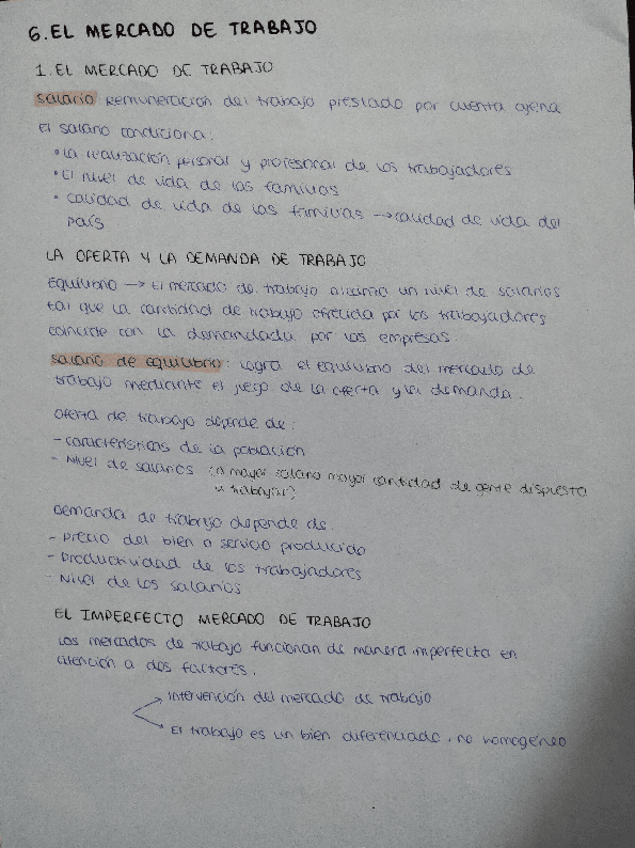 6. EL MERCADO DE TRABAJO
1. EL MERCADO DE TRABAJO
salario: Remuneración del trabajo prestado por cuenta ajena
el salario condiciona:
• La realización personal y profesional de los trabajadores
• El nivel de vida de las familias
• calidad de vida de las familias → calidad de vida del
país
LA OFERTA Y LA DEMANDA DE TRABAJO
Equilibrio → El mercado de trabajo alcanza un nivel de salarios
tal que la cantidad de trabajo ofrecida por los trabajadores
coincide con la demandada por las empresas.
salario de equilibrio: logra el equilibrio del mercado de
trabajo mediante el juego de la oferta y la demanda.
Oferta de trabajo depende de:
- características de la población
- Nivel de salarios (a mayor salario mayor cantidad de gente dispuesta
a trabajar)
Demanda de trabajo depende de:
- Precio del bien o servicio producido
- Productividad de los trabajadores
- Nivel de los salarios
EL IMPERFECTO MERCADO DE TRABAJO
Los mercados de trabajo funcionan de manera imperfecta en
atención a dos factores.
Intervención del mercado de trabajo
El trabajo es un bien diferenciado, no homogéneo